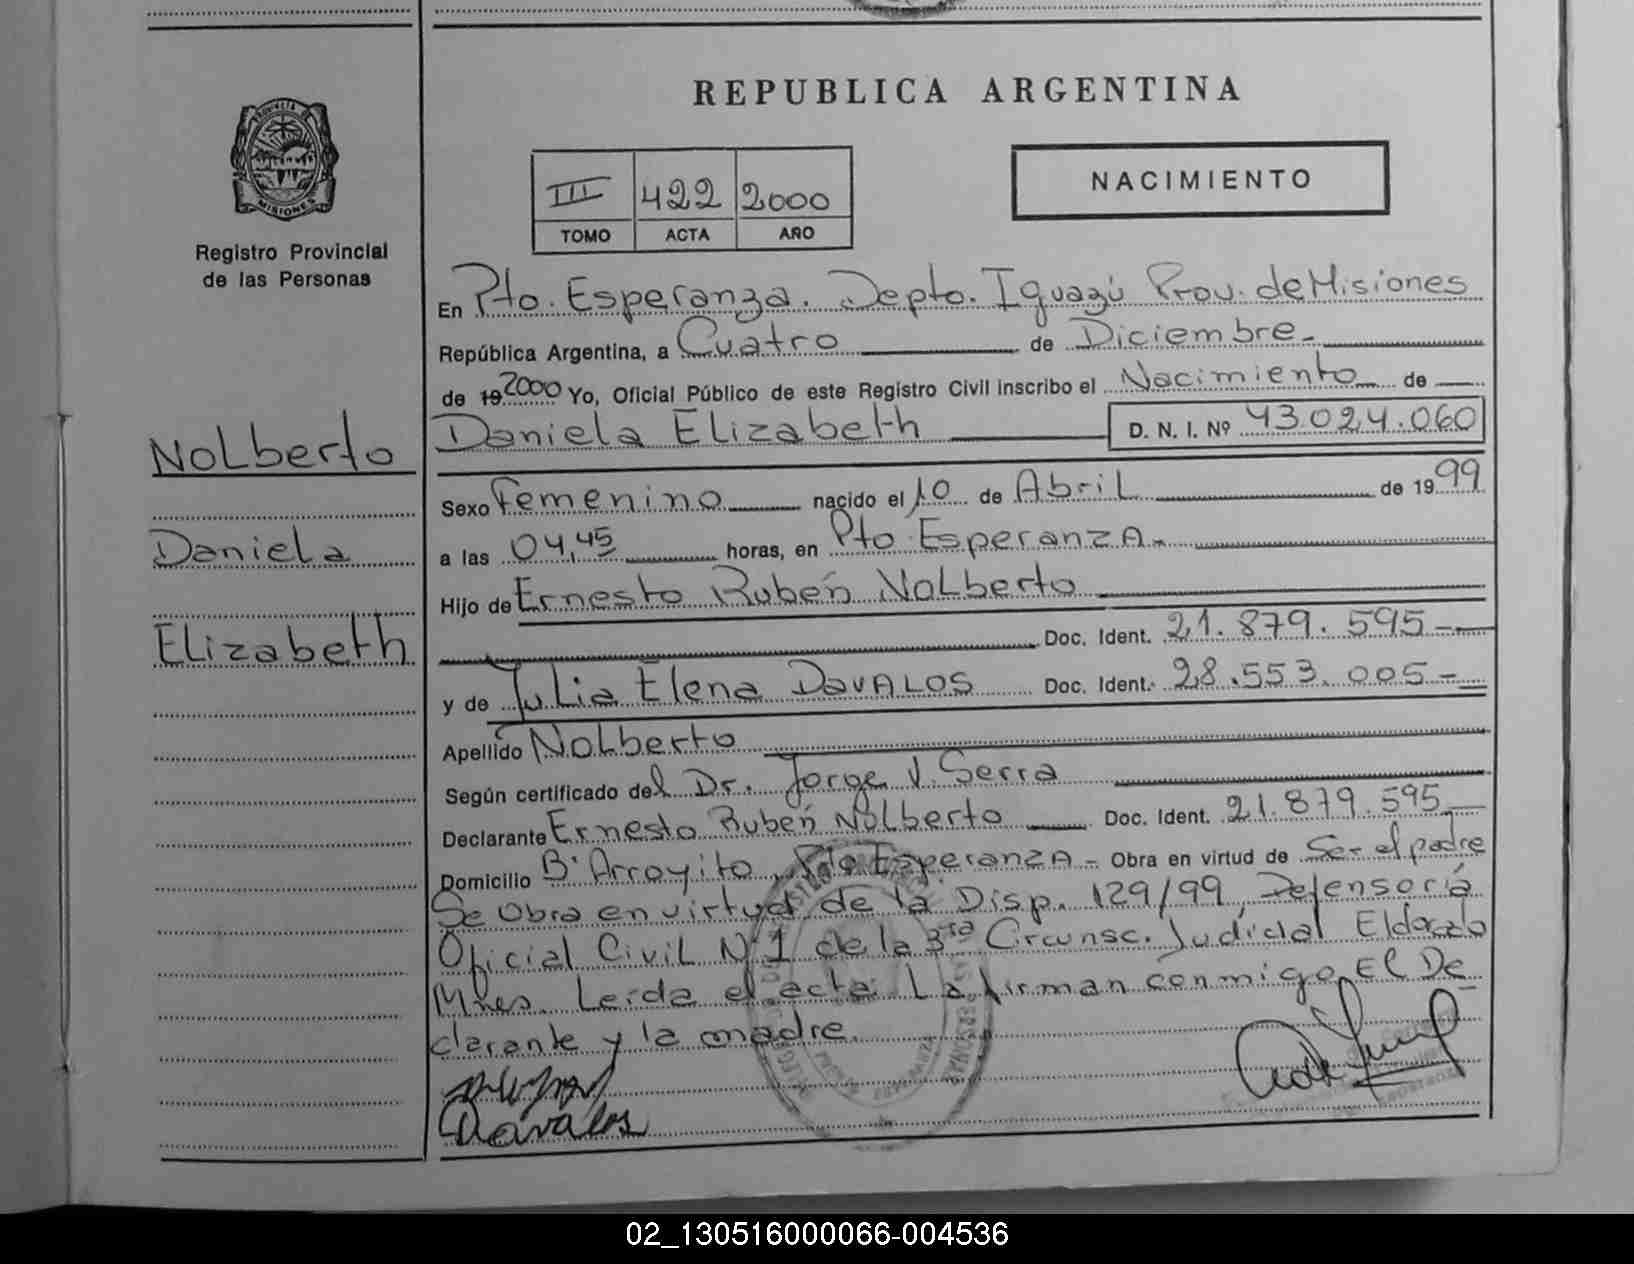 REPUBLICA ARGENTINA
PROVINCIA
MISIONES
Registro Provincial
de las Personas
III 422 2000
TOMO ACTA AÑO
NACIMIENTO
En Pto. Esperanza. Depto. Iguazú Prov. de Misiones
República Argentina, a Cuatro de Diciembre.-
de 19 2000 Yo, Oficial Público de este Registro Civil inscribo el Nacimiento de
Daniela Elizabeth D. N. I. Nº 43.024.060
Nolberto
Daniela
Elizabeth
Sexo Femenino nacido el 10 de Abril de 1999
a las 04,45 horas, en Pto Esperanza.-
Hijo de Ernesto Rubén Nolberto
Doc. Ident. 21.879.595-
y de Julia Elena Davalos Doc. Ident. 28.553.005-
Apellido Nolberto
Según certificado del Dr. Jorge V. Serra
Declarante Ernesto Rubén Nolberto Doc. Ident. 21.879.595
Domicilio B° Arroyito, Pto Esperanza - Obra en virtud de Ser el padre
Se Obra en virtud de la Disp. 129/99, Defensoría
Oficial Civil N°1 de la 3ra Circunsc. Judicial Eldorado
Mnes. Leída el acta La firman conmigo El De
clarante y la madre.
Davalos
02_130516000066-004536